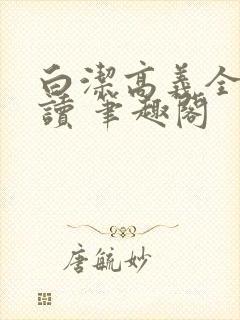 白潔高義全
讀 筆趣閣
唐毓妙